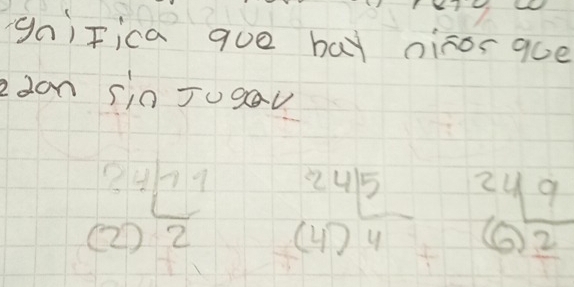 gnifica que hay niños que
edan sin Jugar
24 11 24 5 24 9
(2) 2 (4) 4 (6) 2